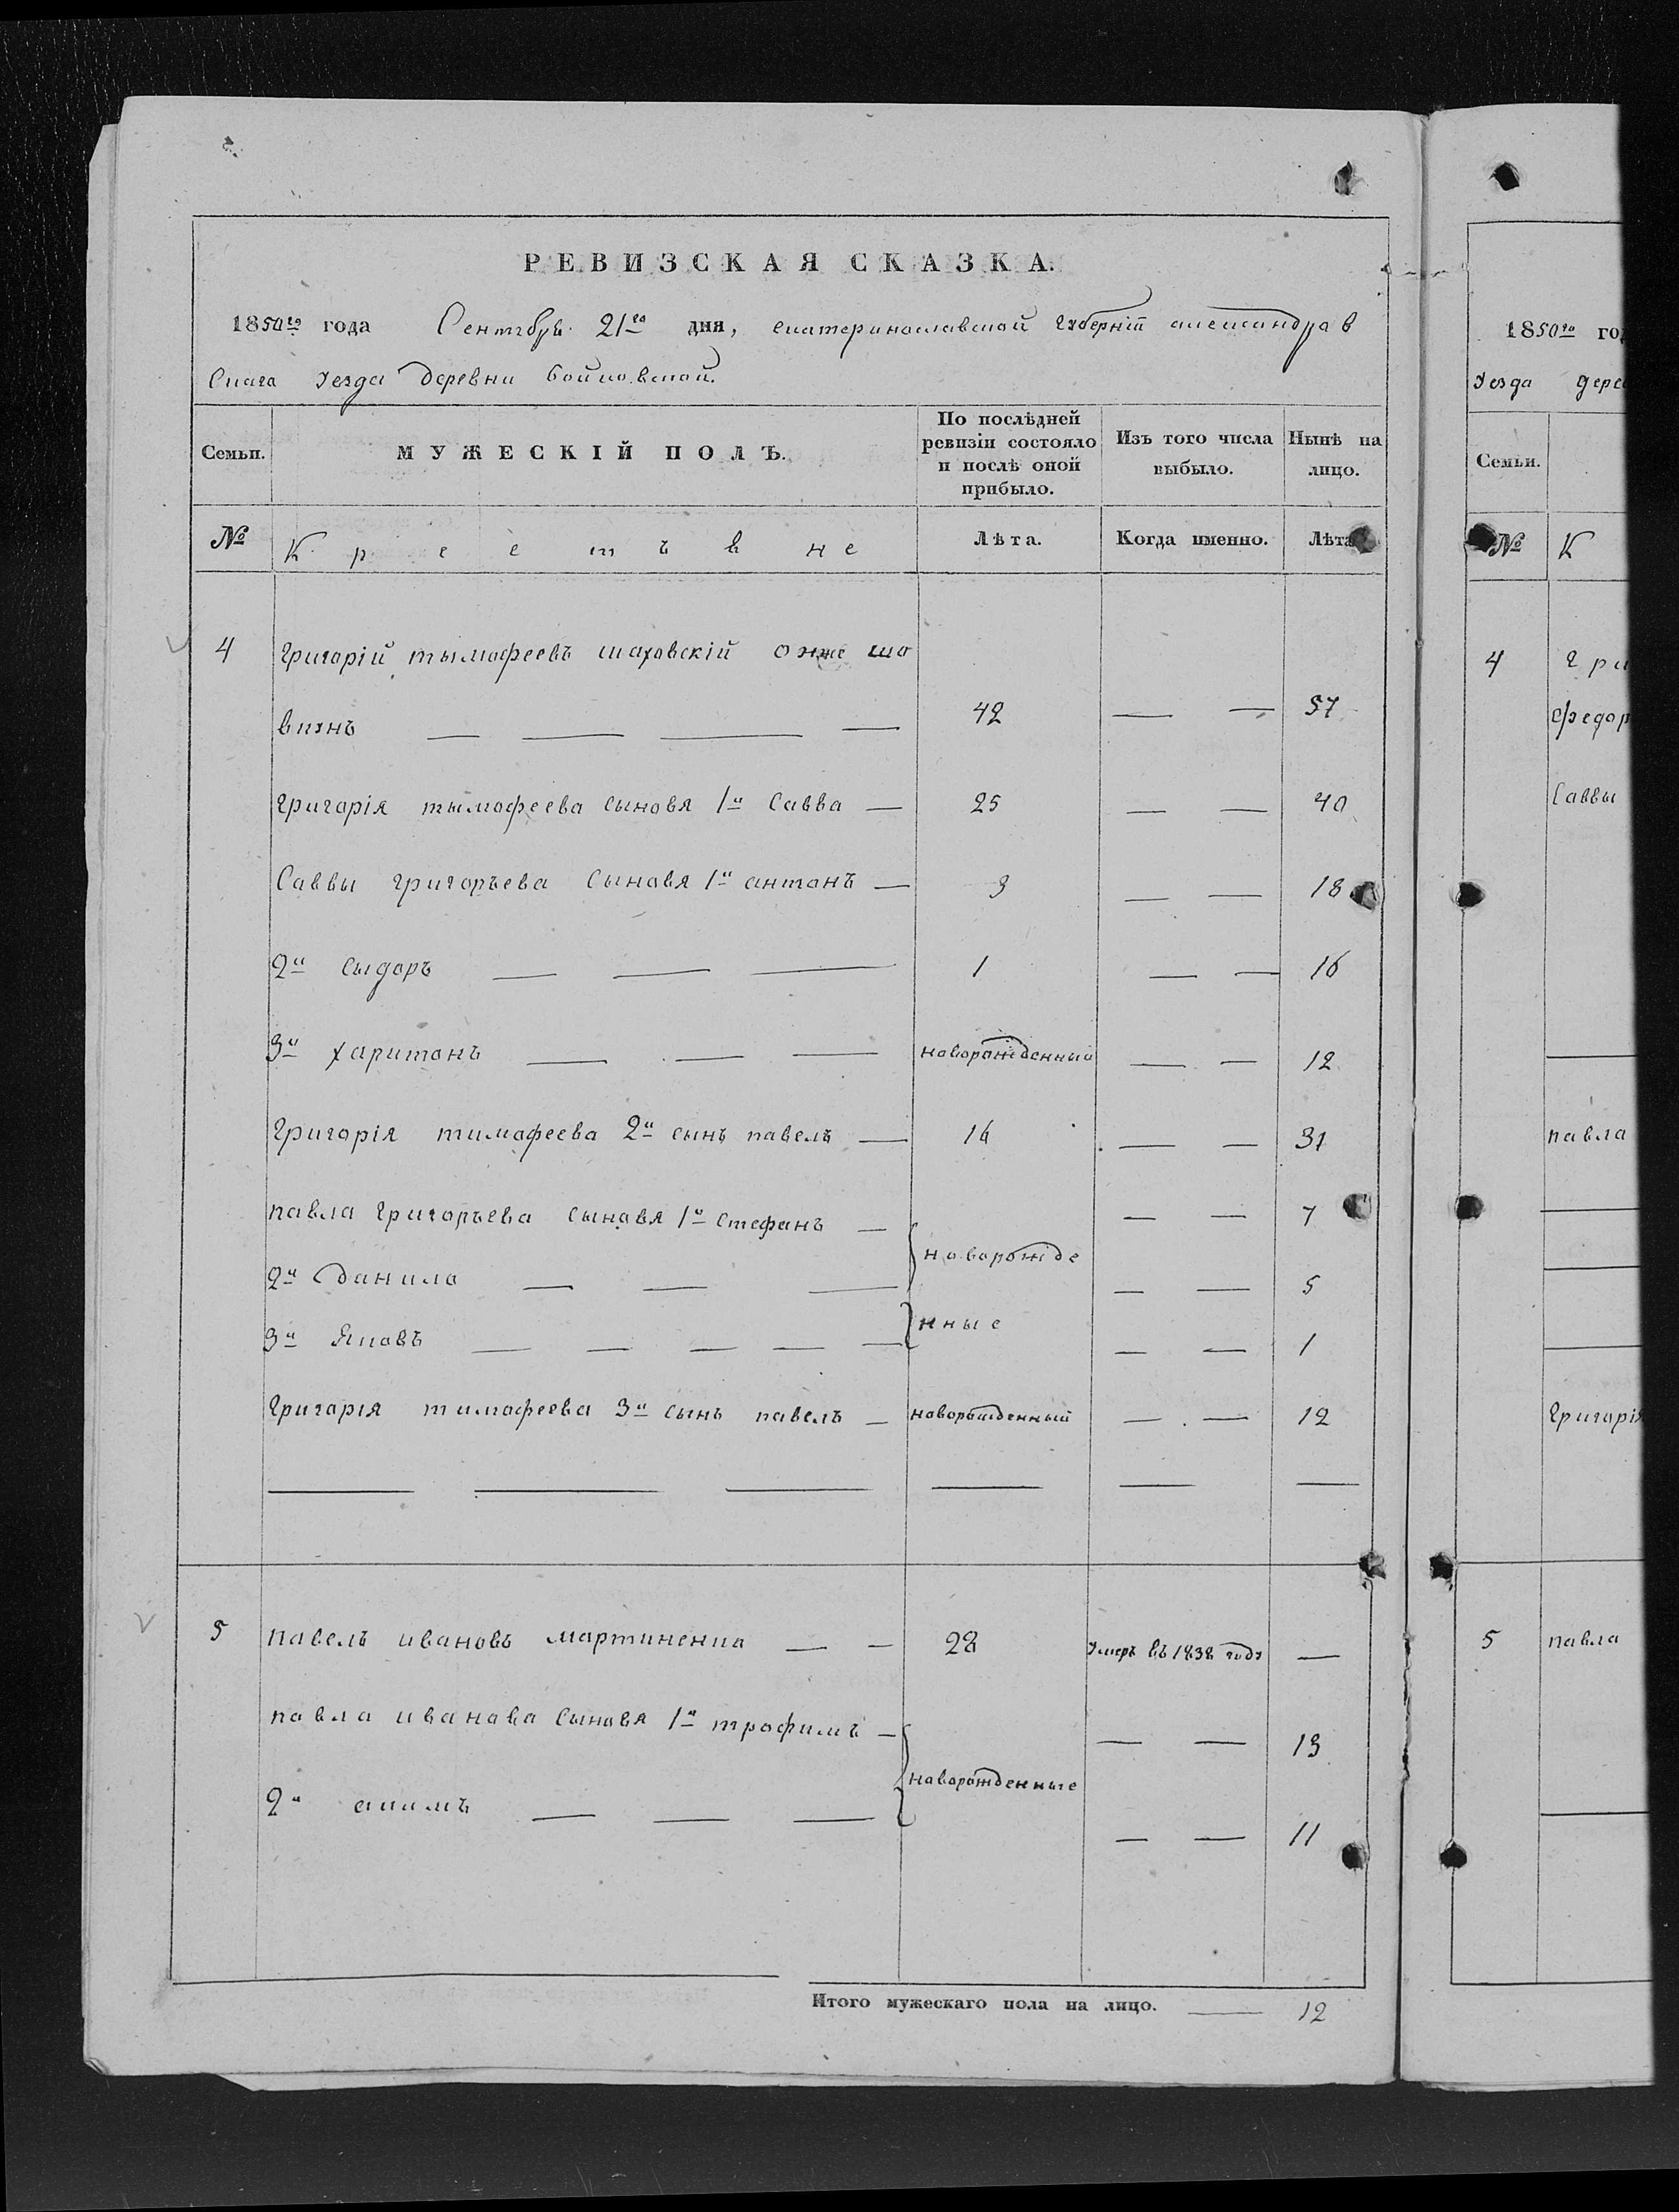 РЕВИЗСКАЯ СКАЗКА.
1850го года Сентебря 21го дня, екатеринославской губерніи александров
скага уезда деревни бойковской.
Семьи. МУЖЕСКІЙ ПОЛЪ. По послѣдней ревизіи состояло и послѣ оной прибыло. Изъ того числа выбыло. Нынѣ на лицо.
№ К р е с т ь я н е Лѣта. Когда именно. Лѣта
4 Григорій тымофеевъ шаховскій онже ша
винъ — — — — 42 — — 57
Григорія тымофеева сыновя 1й Савва — 25 — — 40
Саввы григоръева сыновя 1й антонъ — 3 — — 18
2й сыдоръ — — — 1 — — 16
3й харитонъ — — — новорожденный — — 12
Григорія тимофеева 2й сынъ павелъ — 16 — — 31
павла григоръева сыновя 1й стефанъ — — — 7
новорожде
2й данило — — — — — 5
нные
3й Яковъ — — — — — — — 1
Григорія тимофеева 3й сынъ павелъ — новорожденный — — 12
— — — — — —
5 павелъ ивановъ мартиненка — — 28 умеръ въ 1838 году —
павла иванова сыновя 1й трофимъ — — — 13
новорожденные
2й акимъ — — — — — 11
Итого мужескаго пола на лицо. — 12
1850го го
уезда дере
Семьи.
№ К
4 Гри
федор
Саввы
павла
Григорія
5 павла